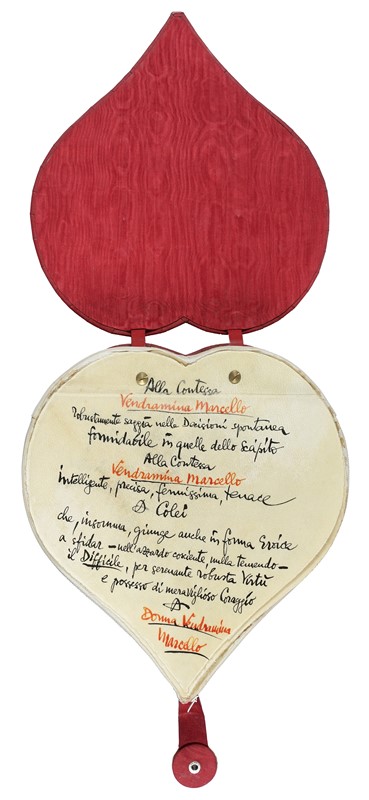 Alla Contessa
Vendramina Marcello
Robustamente saggia nelle Decisioni spontanea
formidabile in quelle dello Scipito
Alla Contessa
Vendramina Marcello
intelligente, precisa, fermissima, tenace
A Colei
che, insomma, giunge anche in forma Eroica
a sfidar – nell'azzardo cosciente, nulla temendo –
il Difficile, per serenante robusta Virtù
e possesso di meraviglioso Coraggio
A
Donna Vendramina
Marcello